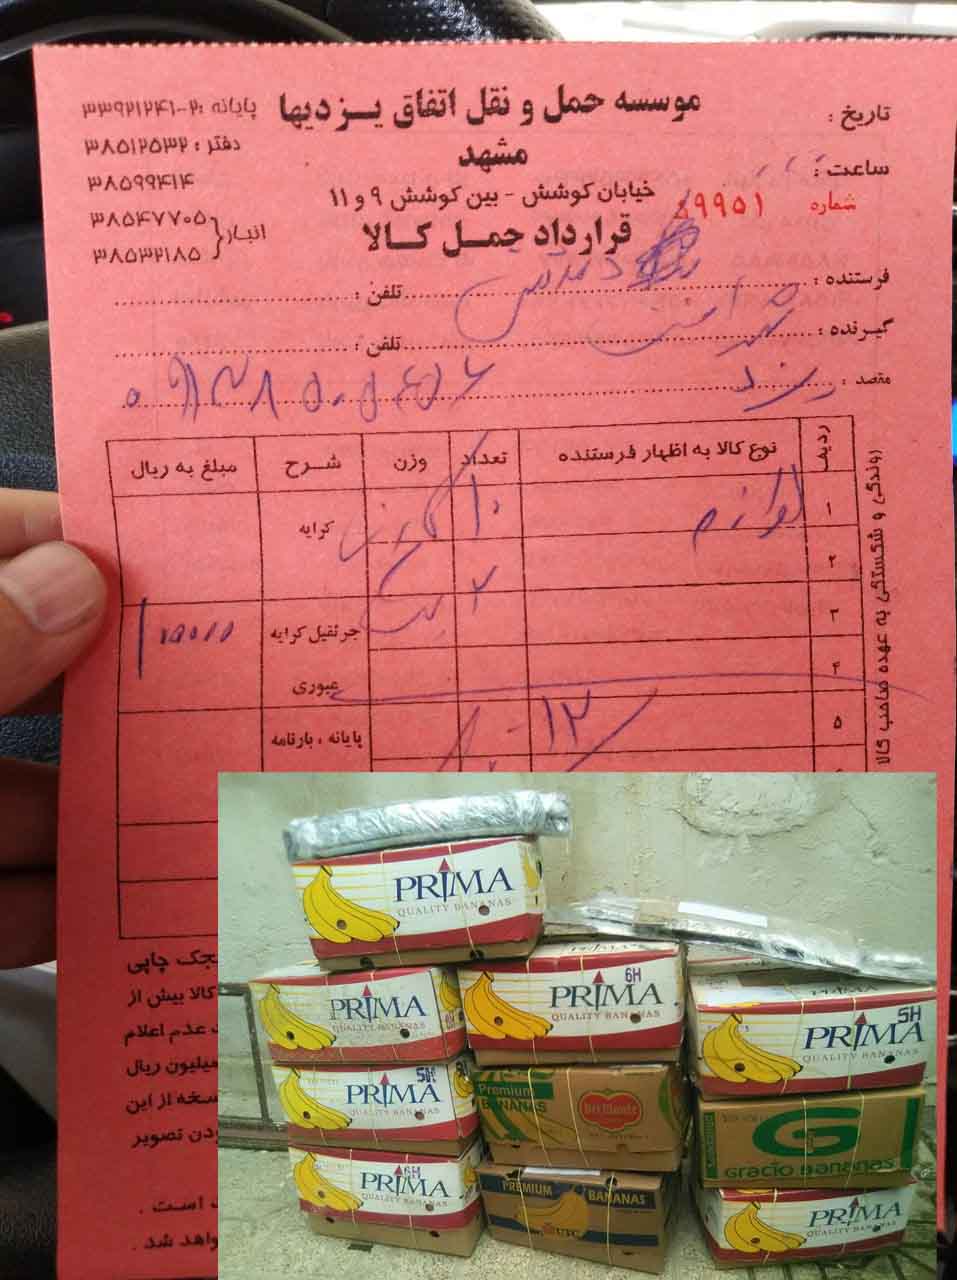 موسسه حمل و نقل اتفاق یـزدیها
مشهد
خیابان کوشش - بین کوشش ۹ و ۱۱
قرارداد حمـل کـالا
تاریخ :
ساعت :
شماره ۵۹۹۵۱
پایانه : ۲-۳۳۹۲۱۲۴۱
دفتر : ۳۸۵۱۲۵۳۲
۳۸۵۹۹۴۱۴
انبار { ۳۸۵۴۷۷۰۵
۳۸۵۳۲۱۸۵
فرستنده : تلفن :
گیرنده : تلفن :
مقصد :
ردیف نوع کالا به اظهار فرستنده تعداد وزن شـرح مبلغ به ریال
۱ لوازم ۱۰ کارتن کرایه
۲
۳ ۲ جرثقیل کرایه
۴ عبوری
۵ ۱۲ پایانه ، بارنامه
روندگی و شکستگی به عهده صاحب کالا
جک چاپی
کالا بیش از
عدم اعلام
میلیون ریال
سخه از این
دن تصویر
است .
واهد شد .
PRIMA
QUALITY BANANAS
PRIMA
QUALITY BANANAS
6H
PRIMA
QUALITY BANANAS
5H
PRIMA
BANANAS
5H
PRIMA
QUALITY BANANAS
Premium
BANANAS
Del Monte
G
GRACIO BANANAS
6H
PRIMA
QUALITY BANANAS
PREMIUM BANANAS
PRIMA
QUALITY BANANAS